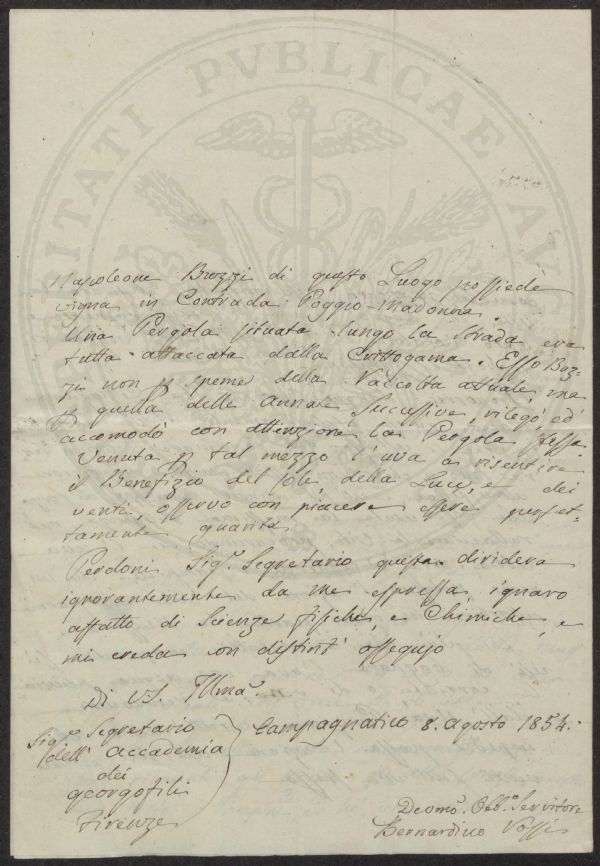 PROSPERITATI PVBLICAE AVGENDAE
Napoleone Buzzi di questo Luogo possiede
vigna in Contrada Poggio-Madonna.
Una Pergola situata lungo la strada era
tutta attaccata dalla Crittogama. Esso Buz=
zi non p speme della Raccolta attuale, ma
p quella delle annate successive, rilegò, ed
accomodò con attenzione la Pergola stessa.
Venuta p tal mezzo l'uva a risentire
il Benefizio del sole, della Luce, e dei
venti, osservo con piacere essere perfet=
tamente guarita
Perdoni Sig.e Segretario questa
ignorantemente da me espressa, ignaro
affatto di Scienze fisiche, e Chimiche, e
mi creda con distint' ossequio
Di VS. Illma.
Sig.e Segretario
dell' Accademia
dei
georgofili
Firenze
Campagnatico 8. Agosto 1854.
Devmo. Obb.o Servitore
Bernardino